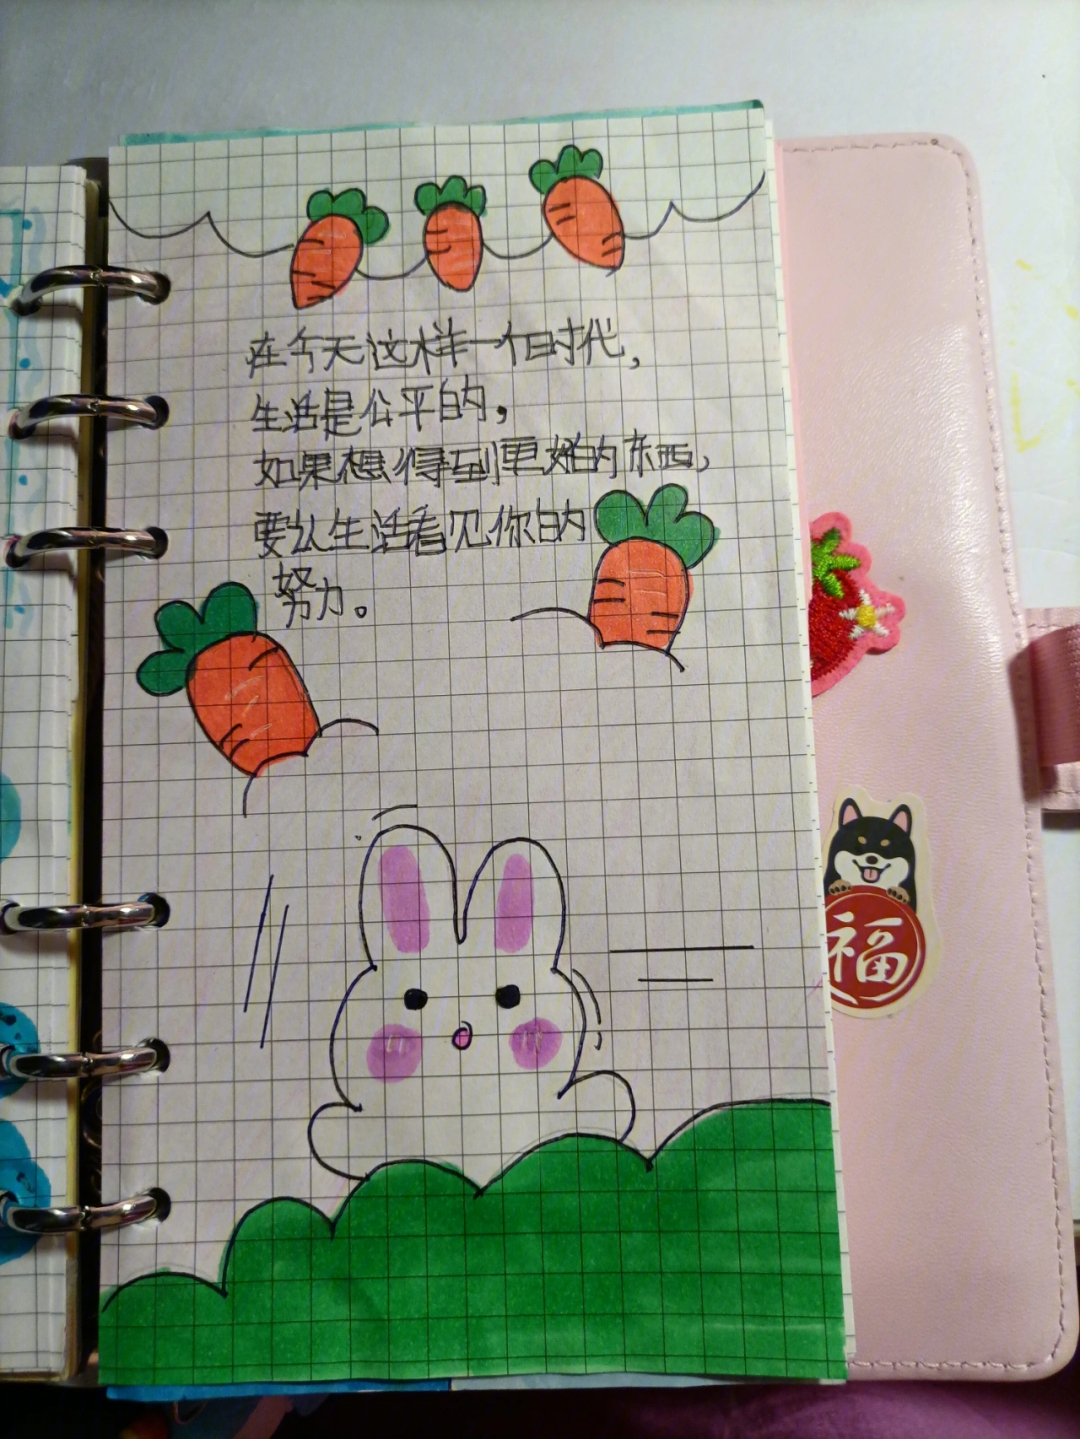 在今天这样一个时代，
生活是公平的，
如果想得到更好的东西，
要让生活看见你的
努力。
福